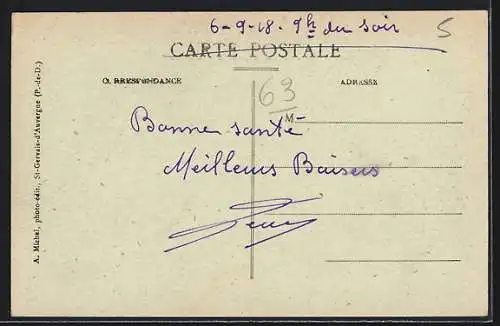 6-9-18. 9h du soir
5
CARTE POSTALE
CORRESPONDANCE
ADRESSE
63
M
Bonne santé
Meilleurs Baisers
A. Michel, photo-édit., St-Gervais-d'Auvergne (P.-de-D.)